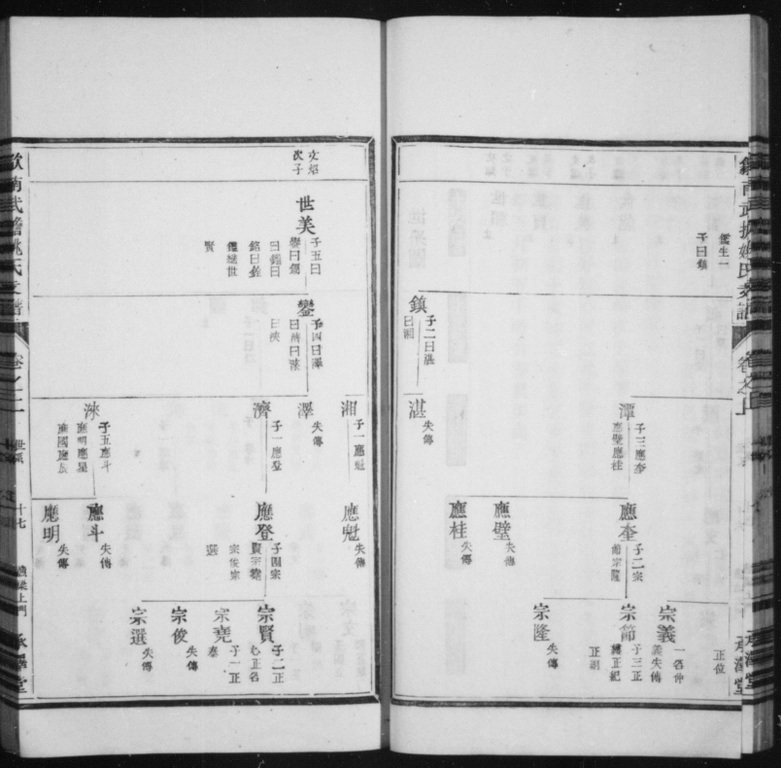 鑑生一
子曰鎮
鎮
子二曰湛
曰湘
湛
失傳
潭
子三應奎
應壁應桂
應奎
子二宗
節宗隆
應壁
失傳
應桂
失傳
正位
宗義
一名仲
義失傳
宗節
子三正
綱正紀
正嗣
宗隆
失傳
湘
子一應魁
應魁
失傳
文炤
次子
世美
子五曰
鑾曰錫
曰鎧曰
銘曰鉉
鑑繼世
賢
鑾
子四曰澤
曰濟曰濚
曰浹
澤
失傳
濟
子一應登
浹
子五應斗
應明應星
應國應辰
應登
子四宗
賢宗堯
宗俊宗
選
應斗
失傳
應明
失傳
宗賢
子二正
宗堯
子一正
宗俊
失傳
宗選
失傳
歙南武擔姚氏支譜
卷之二
世系
十七
承澤堂